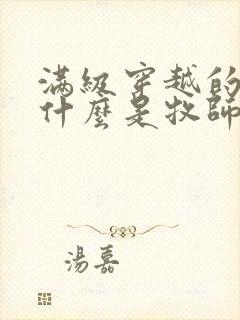 滿級穿越的
什麼是牧師
湯嘉